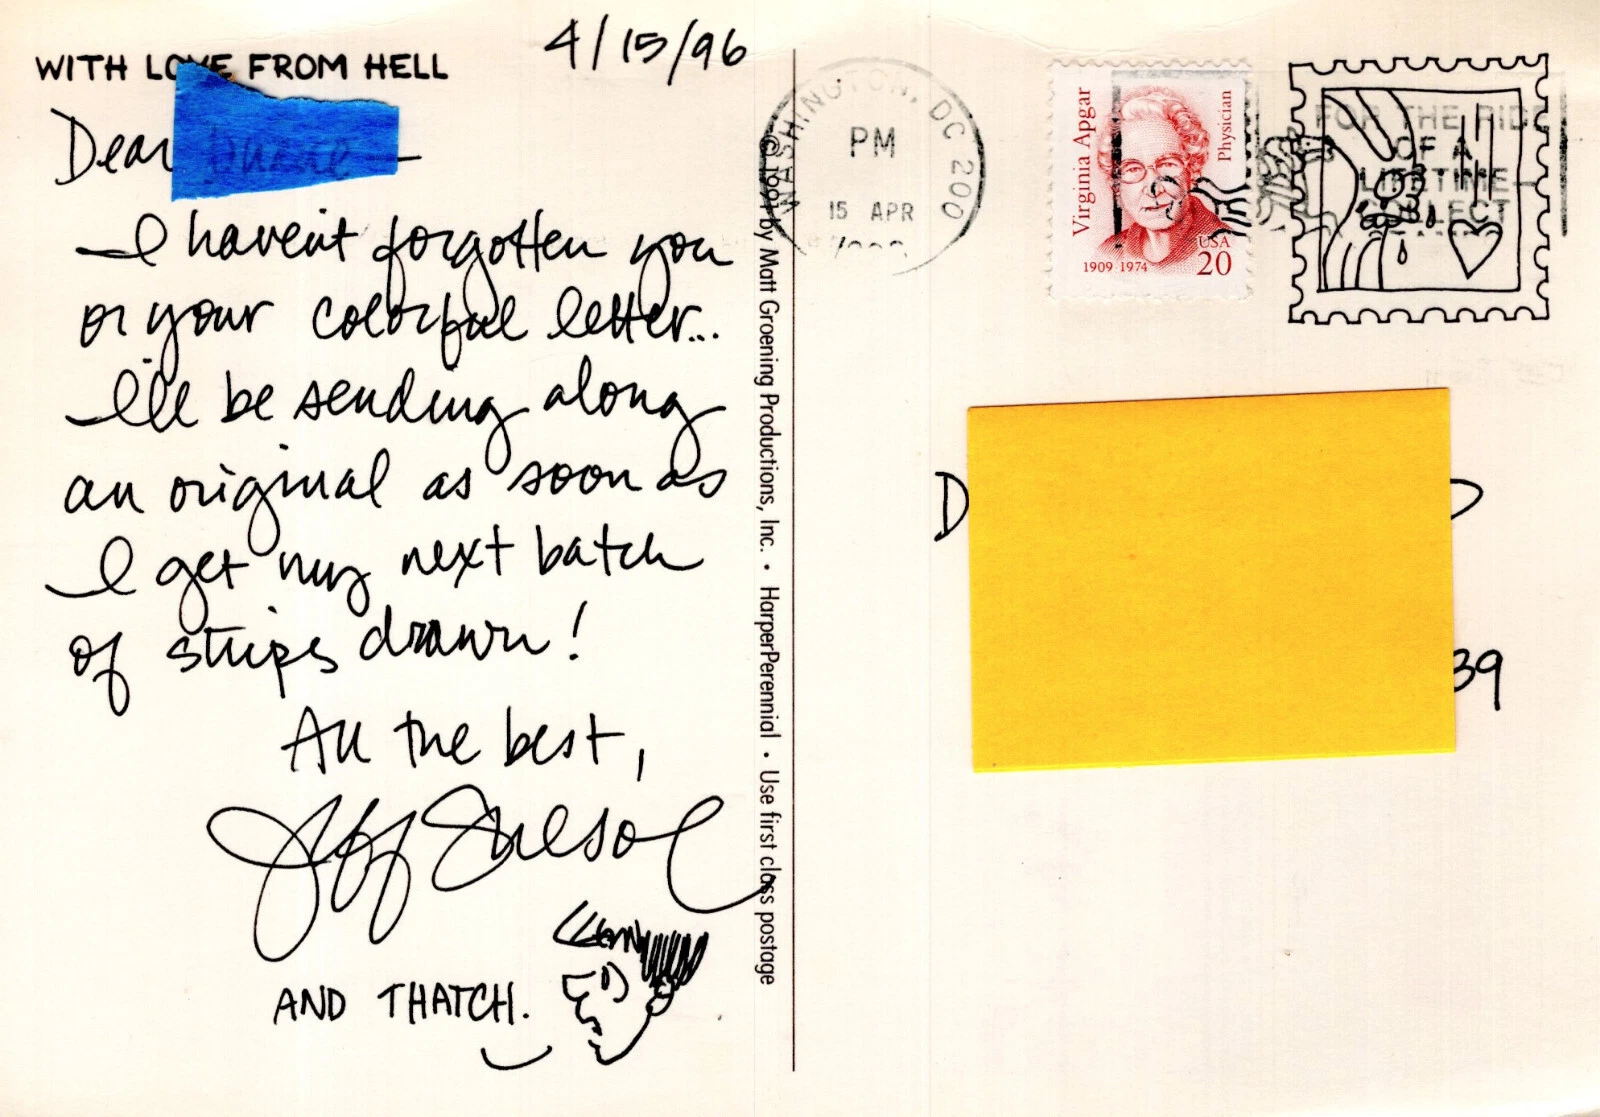 WITH LOVE FROM HELL
4/15/96
Dear
I haven't forgotten you
or your colorful letter...
I'll be sending along
an original as soon as
I get my next batch
of strips drawn!
All the best,
Jeff Shesol
AND THATCH.
© 1991 by Matt Groening Productions, Inc. • HarperPerennial • Use first class postage
WASHINGTON, DC 200
PM
15 APR
Virginia Apgar
Physician
1909-1974
USA
20
FOR THE RIDE
OF A
LIFETIME—
D
39